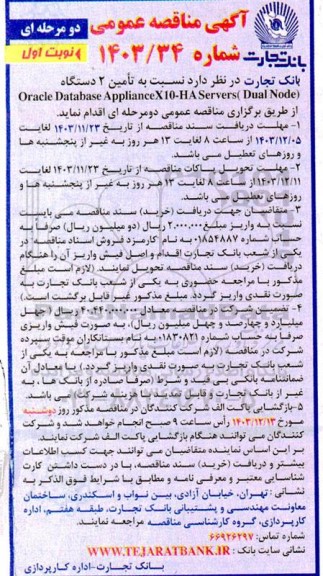 آگهی مناقصه عمومی
دو مرحله ای
شماره ۱۴۰۳/۳۴
نوبت اول
بانک تجارت
بانک تجارت در نظر دارد نسبت به تأمین ۲ دستگاه
Oracle Database ApplianceX10-HA Servers( Dual Node)
از طریق برگزاری مناقصه عمومی دومرحله ای اقدام نماید.
۱- مهلت دریافت سند مناقصه از تاریخ ۱۴۰۳/۱۱/۲۳ لغایت
۱۴۰۳/۱۲/۰۵ از ساعت ۸ لغایت ۱۳ هر روز به غیر از پنجشنبه ها
و روزهای تعطیل می باشد.
۲- مهلت تحویل پاکات مناقصه از تاریخ ۱۴۰۳/۱۱/۲۳ لغایت
۱۴۰۳/۱۲/۱۱ از ساعت ۸ لغایت ۱۳ هر روز به غیر از پنجشنبه ها و
روزهای تعطیل می باشد.
۳- متقاضیان جهت دریافت (خرید) سند مناقصه می بایست
نسبت به واریز مبلغ ۲.۰۰۰.۰۰۰ ریال (دو میلیون ریال) صرفاً به
حساب شماره ۰۱۸۵۴۸۸۷ به نام "کارمزد فروش اسناد مناقصه" در
یکی از شعب بانک تجارت اقدام و اصل فیش واریز آن را هنگام
دریافت (خرید) سند مناقصه تحویل نمایند. (لازم است مبلغ
مذکور با مراجعه حضوری به یکی از شعب بانک تجارت به
صورت نقدی واریز گردد. مبلغ مذکور غیر قابل برگشت است.)
۴- تضمین شرکت در مناقصه معادل ریال (چهل
میلیارد و چهارصد و چهل میلیون ریال)، به صورت فیش واریزی
صرفاً به حساب شماره ۰۱۸۳۰۸۲۱ به نام بستانکاران موقت سپرده
شرکت در مناقصه (لازم است مبلغ مذکور با مراجعه به یکی از
شعب بانک تجارت به صورت نقدی واریز گردد.) یا معادل آن
ضمانتنامه بانکی بی قید و شرط (صرفاً صادره از بانک ها، به
غیر از بانک تجارت) و قابل تمدید با نام شرکت می باشد.
۵- بازگشایی پاکت الف شرکت کنندگان در مناقصه مذکور روز دوشنبه
مورخ ۱۴۰۳/۱۲/۱۳ رأس ساعت ۹ صبح انجام خواهد شد و شرکت
کنندگان می توانند هنگام بازگشایی پاکت الف شرکت نمایند.
بر این اساس نماینده متقاضیان می توانند جهت کسب اطلاعات
بیشتر و دریافت (خرید) سند مناقصه، با در دست داشتن کارت
شناسایی معتبر و معرفی نامه و مطابق با شرایط فوق الذکر به
نشانی : تهران، خیابان آزادی، بین نواب و اسکندری، ساختمان
معاونت مهندسی و پشتیبانی بانک تجارت، طبقه هفتم، اداره
کارپردازی، گروه کارشناسی مناقصه مراجعه نمایند.
شماره تماس: ۶۶۹۲۶۲۹۷
نشانی سایت بانک : WWW.TEJARATBANK.IR
بانک تجارت-اداره کارپردازی